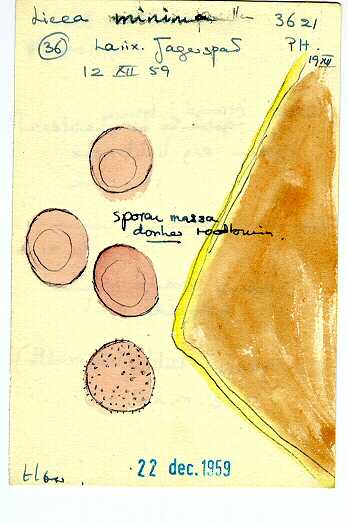 Licea minima 3621
36 Larix. Jagerspad PH.
12 XII 59 19 XII
Sporen massa
donker roodbruin.
22 dec. 1959